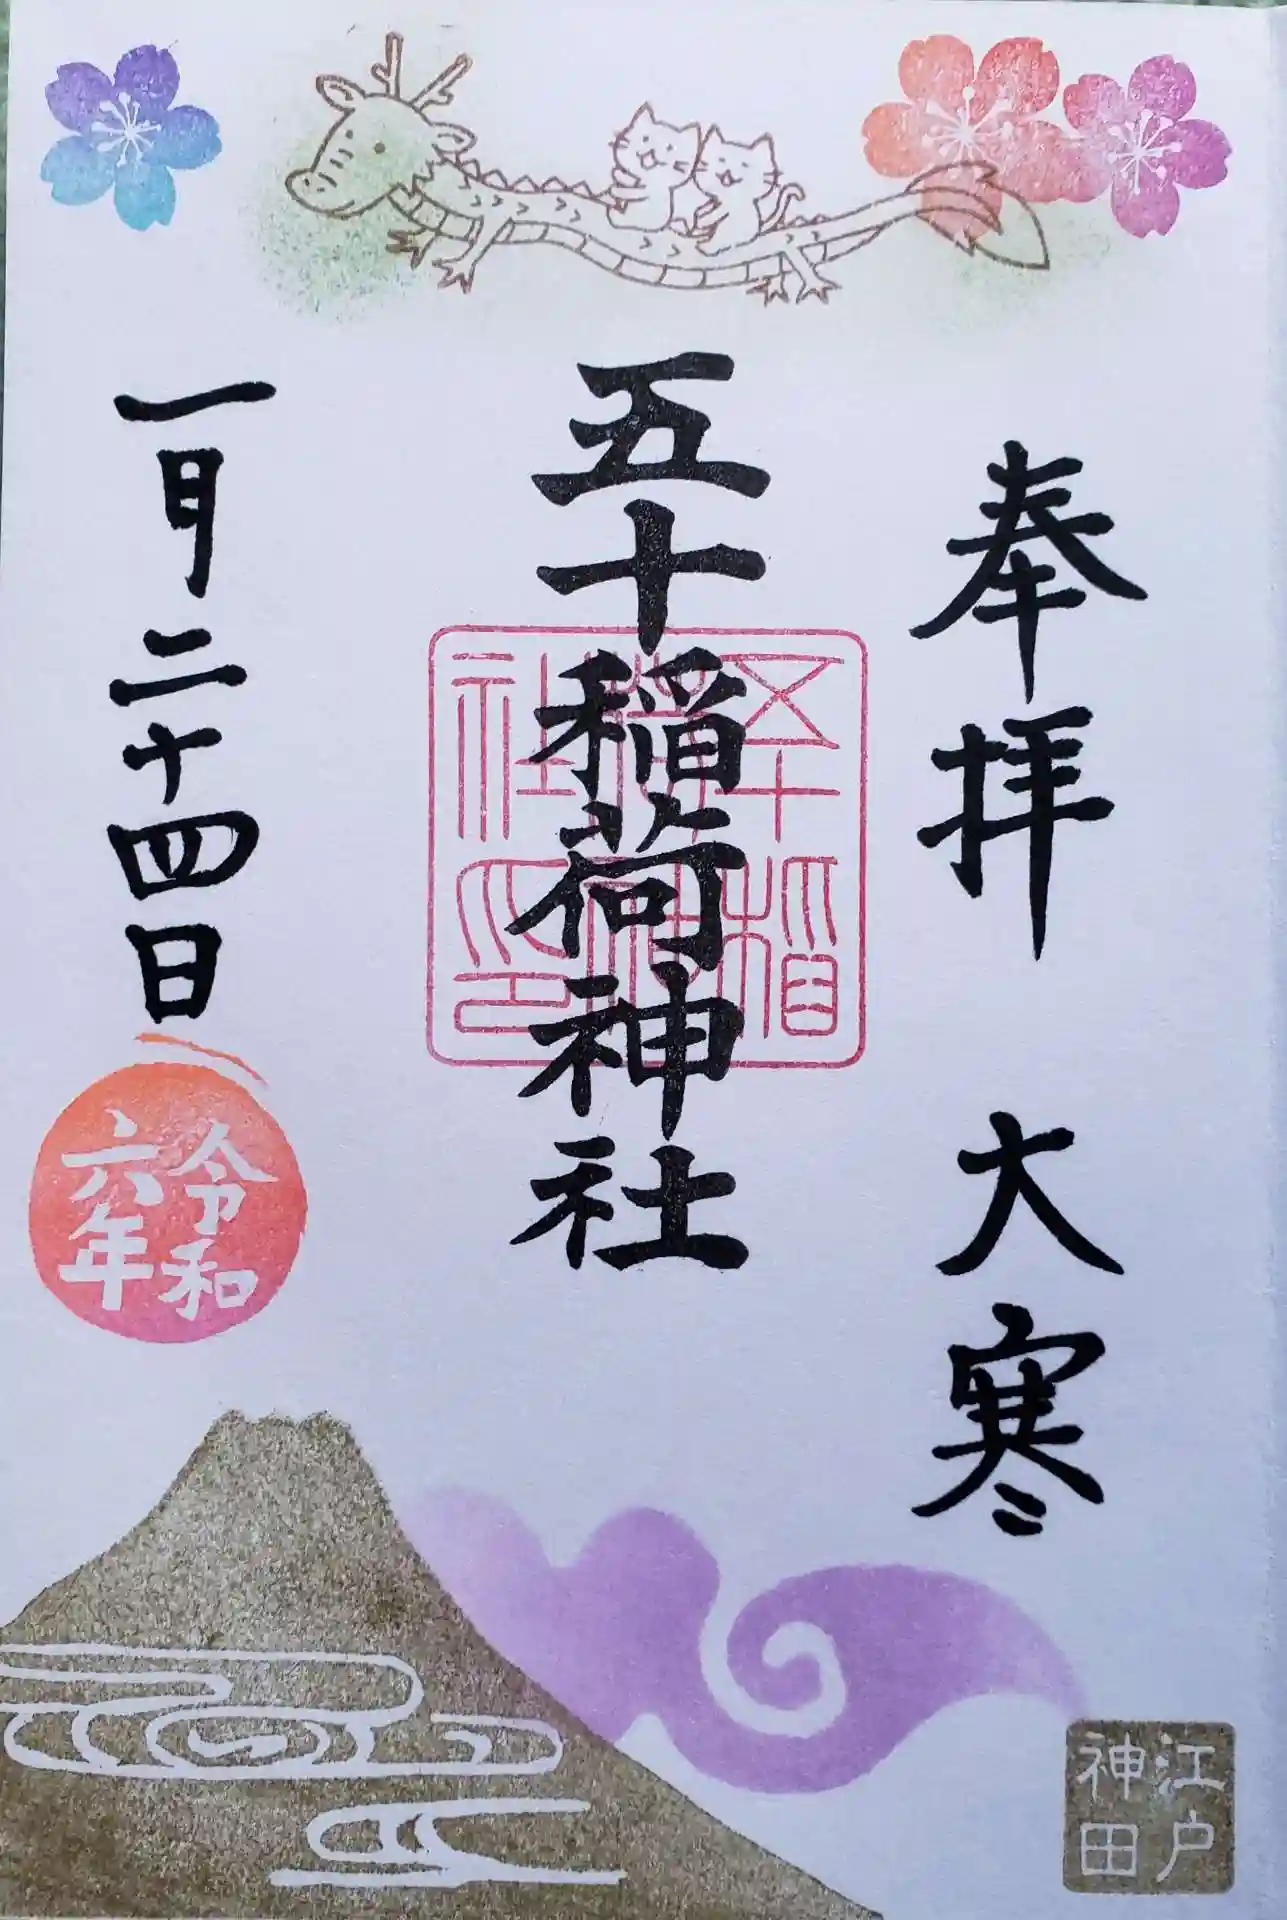 奉拝 大寒
五十稲荷神社
一月二十四日
令和
六年
江戸
神田